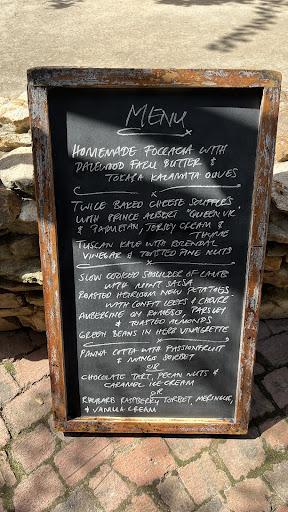 MENU
HOMEMADE FOCCACIA WITH
DALEWOOD FARM BUTTER &
TOKARA KALAMATA OLIVES
TWICE BAKED CHEESE SOUFFLES
WITH PRINCE ALBERT 'QUEEN VIC'
& PARMESAN, JERSEY CREAM &
THYME
TUSCAN KALE WITH
VINEGAR & TOASTED PINE NUTS
SLOW COOKED SHOULDER OF LAMB
WITH MINT SALSA
ROASTED HEIRLOOM NEW POTATOES
WITH CONFIT LEEKS & CHEVRE
AUBERGINE ON ROMESCO, PARSLEY
& TOASTED ALMONDS
GREEN BEANS IN HERB VINAIGRETTE
PANNA COTTA WITH PASSIONFRUIT
& MANGO SORBET
OR
CHOCOLATE TART, PECAN NUTS &
CARAMEL ICE CREAM
OR
RHUBARB RASPBERRY SORBET, MERINGUE,
& VANILLA CREAM